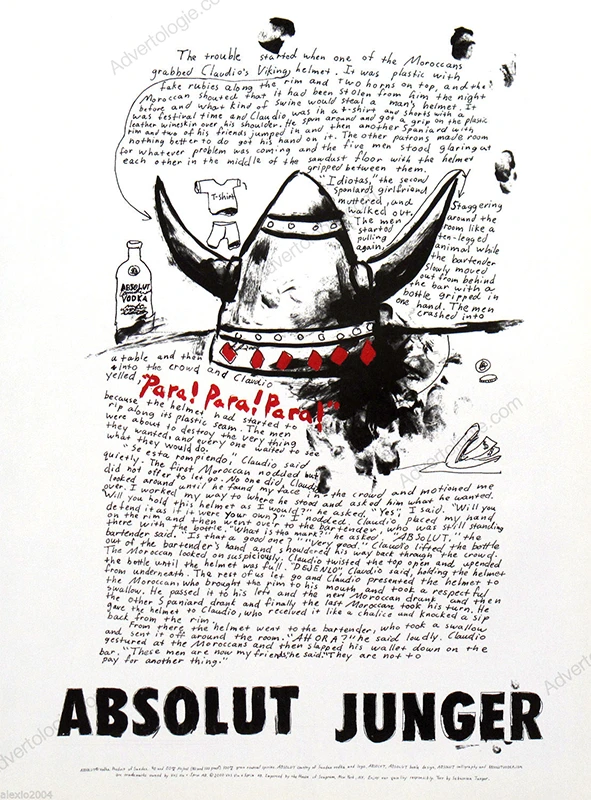 The trouble started when one of the Moroccans
grabbed Claudio's Viking helmet. It was plastic with
fake rubies along the rim and two horns on top, and the
Moroccan shouted that it had been stolen from him the night
before and what kind of swine would steal a man's helmet. It
was festival time and Claudio was in a t-shirt and shorts with a
leather wineskin over his shoulder. He spun around and got a grip on the plastic
rim and two of his friends jumped in and then another Spaniard with
nothing better to do got his hand on it. The other patrons made room
for whatever problem was coming and the five men stood glaring at
each other in the middle of the sawdust floor with the helmet
gripped between them.
"Idiotas," the second
spaniards girlfriend
muttered, and
walked out.
The men
started
pulling
again,
T-shirt
Staggering
around the
room like a
ten-legged
animal while
the bartender
slowly moved
out from behind
the bar with a
bottle gripped in
one hand. The men
crashed into
ABSOLUT
VODKA
a table and then
into the crowd and Claudio
yelled, "Para! Para! Para!"
because the helmet had started to
rip along its plastic seam. The men
were about to destroy the very thing
they wanted, and every one waited to see
what they would do.
"Se esta rompiendo," Claudio said
quietly. The first Moroccan nodded but
did not offer to let go. No one did, Claudio
looked around until he found my face in the crowd and motioned me
over. I worked my way to where he stood and asked him what he wanted.
Will you hold this helmet as I would?" he asked. "Yes", I said. "Will you
defend it as if it were your own?" I nodded. Claudio placed my hand
on the rim and then went over to the bartender, who was still standing
there with the bottle. "What is the mark?" he asked. "ABSOLUT," the
bartender said. "Is that a good one?" "Very good." Claudio lifted the bottle
out of the bartender's hand and shouldered his way back through the crowd.
The Moroccan looked on suspiciously. Claudio twisted the top open and upended
the bottle until the helmet was full. "DEJENLO," Claudio said, holding the helmet
from underneath. The rest of us let go and Claudio presented the helmet to
the Moroccan who brought the rim to his mouth and took a respectful
swallow. He passed it to his left and the next Moroccan drank and then
the other Spaniard drank and finally the last Moroccan took his turn. He
gave the helmet to Claudio, who received it like a chalice and knocked a sip
back from the rim.
From there the helmet went to the bartender, who took a swallow
and sent it off around the room. "AHORA?" he said loudly. Claudio
gestured at the Moroccans and then slapped his wallet down on the
bar. "These men are now my friends," he said. "They are not to
pay for another thing."
ABSOLUT JUNGER
Advertologie.com
alexlo2004